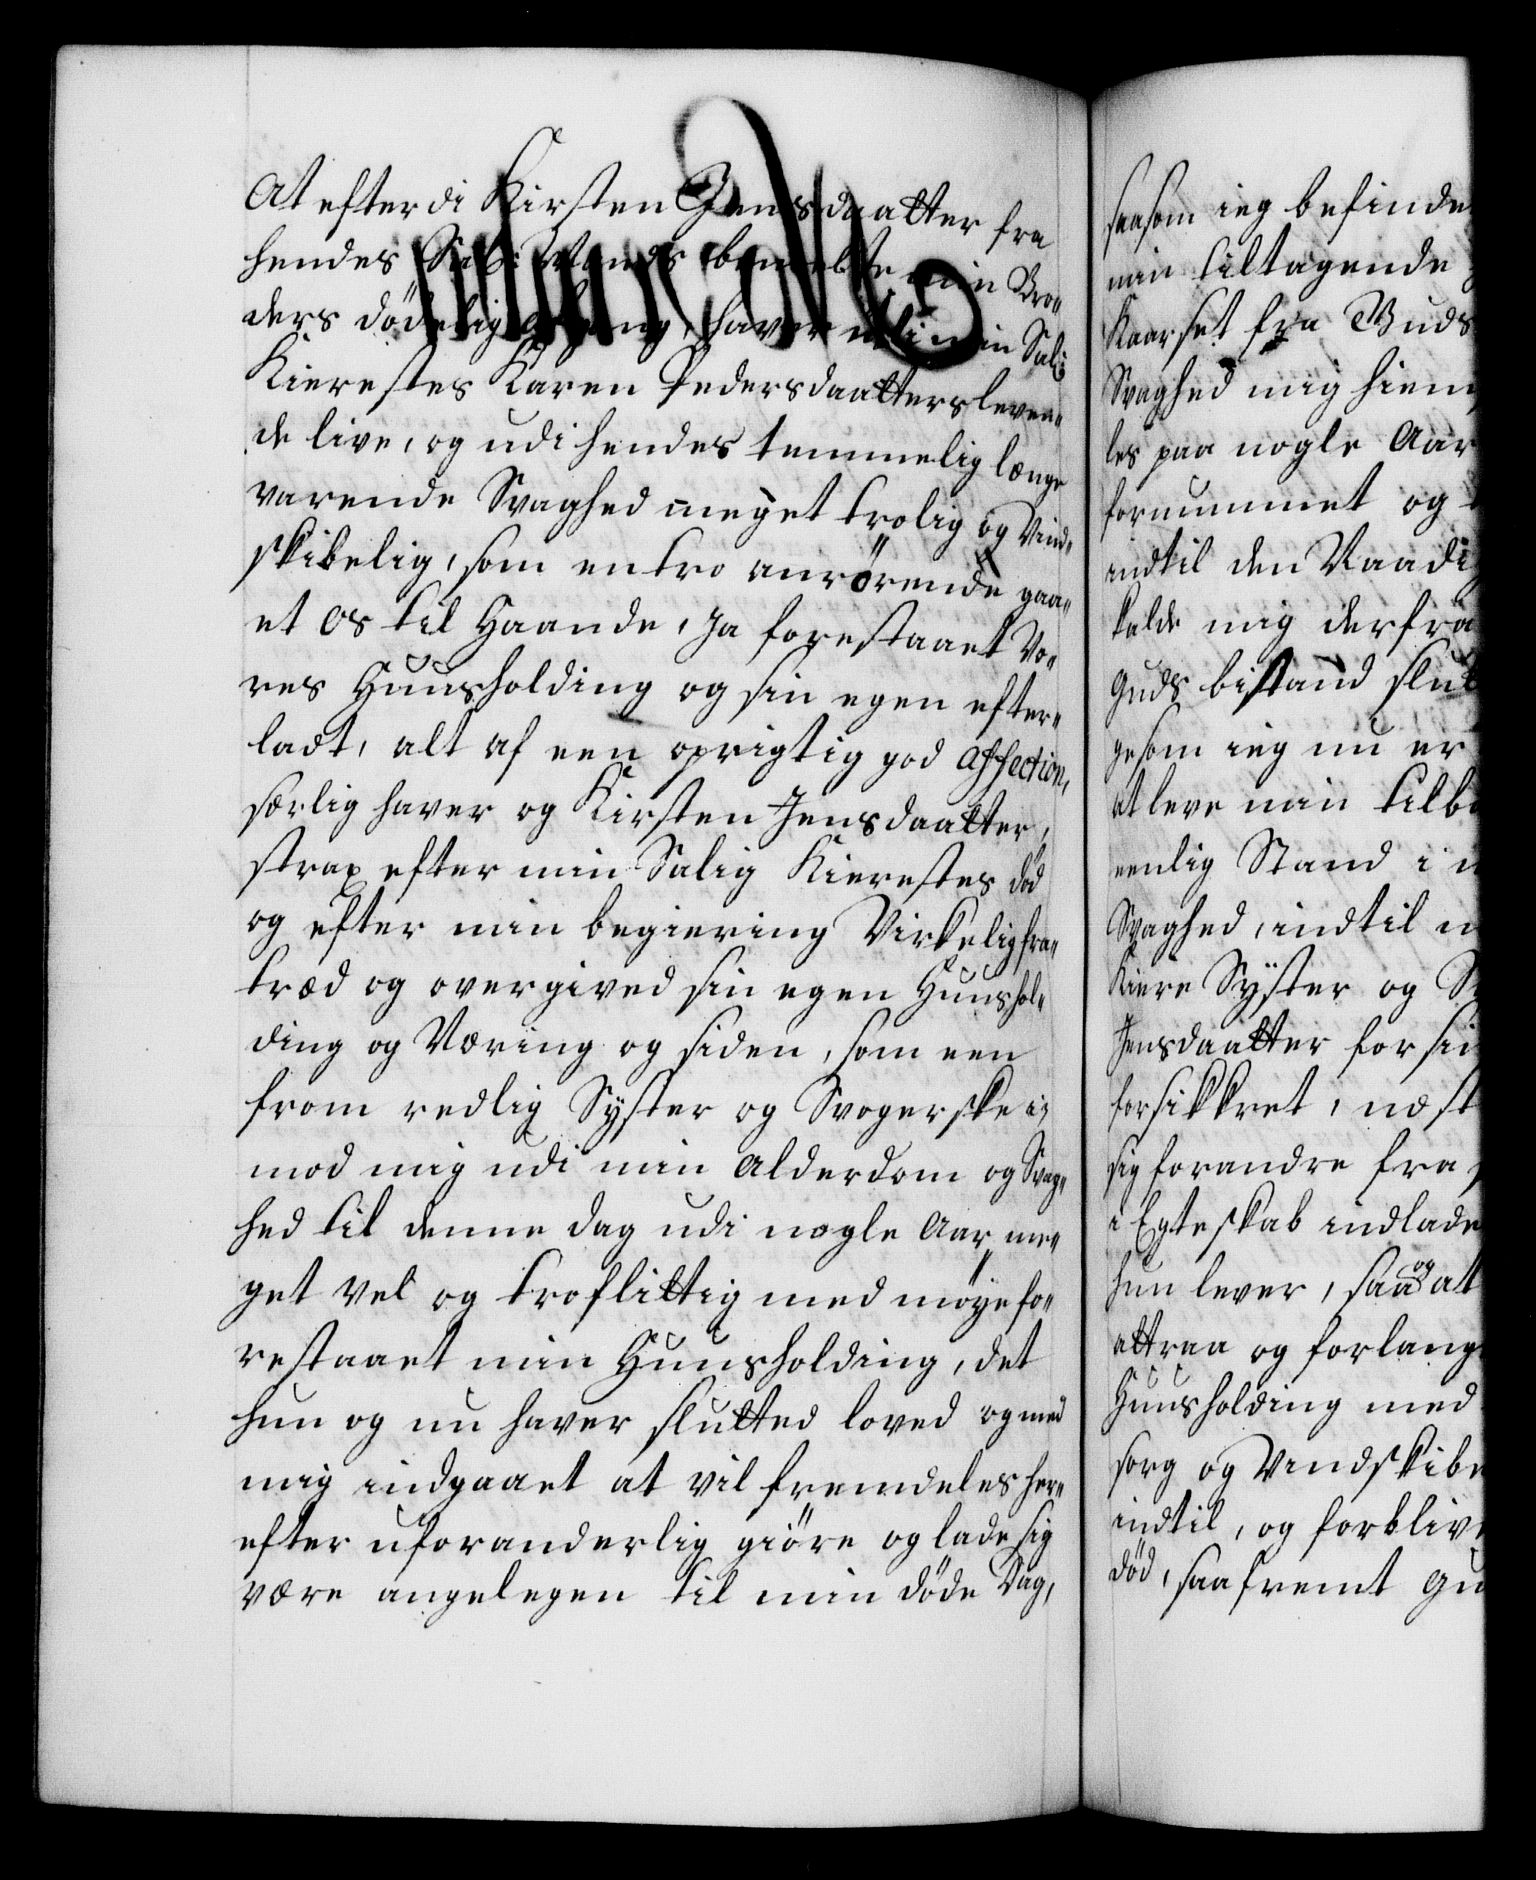 At efterdi Kirsten Jensdaatter fra
hendes Sal: Mands bemelte min Bro-
ders dödelig afgang, haver udi min Sal:
Kierestes Karen Pedersdaatters leven-
de live, og udi hendes temmelig længe
varende Svaghed meget trolig og Vind-
skibelig, som en tro anrörende gaa-
et os til Haande, Ja forestaaet Vo-
res Huusholding og sin egen efter-
ladt, alt af een oprigtig god Affection,
særlig haver og Kirsten Jensdaatter,
strax efter min Salig Kierestes död
og efter min begiering Virkelig fra-
træd og overgived sin egen Huushol-
ding og Næring og siden, som een
from redlig Syster og Svogerske i-
mod mig udi min Alderdom og Svag-
hed til denne dag udi nogle Aar, me-
get vel og troflittig med möye fo-
restaaet min Huusholding, det
hun og nu haver sluttet loved og med
mig indgaaet at vil fremdeles her-
efter uforanderlig giöre og lade sig
være angelegen til min döde Dag,
saasom ieg befinde
min tiltagende
Kaarset fra Guds
Svaghed mig hiem
les paa nogle Aar
fornummet og
indtil den Naadi
kalde mig derfra
Guds bistand slu
gesom ieg nu er
at leve min tilb
eenlig Stand i
Svaghed, indtil
Kiere Syster og S
Jensdaatter for si
forsikkret, næst
sig forandre fra
i Egteskab indlade
hun lever, saa og at
attraa og forlang
Huusholding med
sorg og Vindskibe
indtil, og forblive
död, saafremt Gu